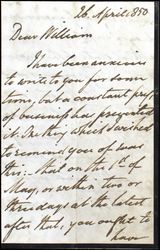 26. April. 1850
Dear William
I have been anxious
to write to you for some
time, but a constant press
of business has prevented
it. In the I wished
to remind you of was
this: that on the 1st of
May, or within two or
three days at the latest
after that, you ought to
have